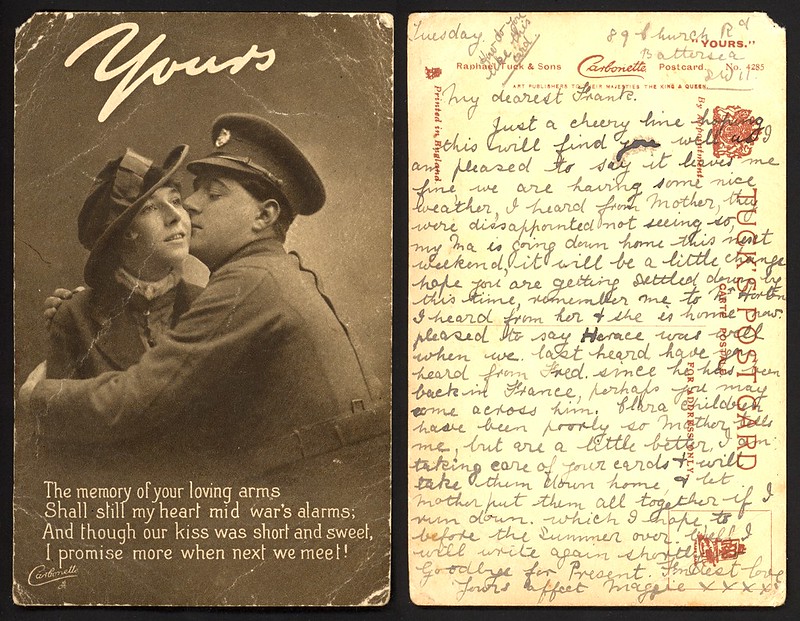 Yours
The memory of your loving arms
Shall still my heart mid war's alarms;
And though our kiss was short and sweet,
I promise more when next we meet!
Carbonette
Tuesday.
How do you
like this
card
89 Church Rd
Battersea
SW 11.
"YOURS."
Raphael Tuck & Sons Carbonette Postcard. No. 4285
ART PUBLISHERS TO THEIR MAJESTIES THE KING & QUEEN
Printed in England
By Appointment
TUCK'S POST CARD
CARTE POSTALE
FOR ADDRESS ONLY
My dearest Frank.
Just a cheery line hoping
this will find you well as I
am pleased to say it leaves me
fine we are having some nice
weather, I heard from Mother, they
were dissappointed not seeing so,
my Ma is going down home this next
weekend, it will be a little change
hope you are getting settled down by
this time, remember me to
I heard from her & she is home now.
pleased to say Horace was well
when we last heard have you
heard from Fred since he has been
back in France, perhaps you may
come across him. Clara children
have been poorly so Mother tells
me, but are a little better, I am
taking care of your cards & will
take them down home & let
Mother put them all together if I
run down. which I hope to
before the Summer over. Well I
will write again shortly
Goodbye for Present. Fondest love
Yours affect Maggie xxxx